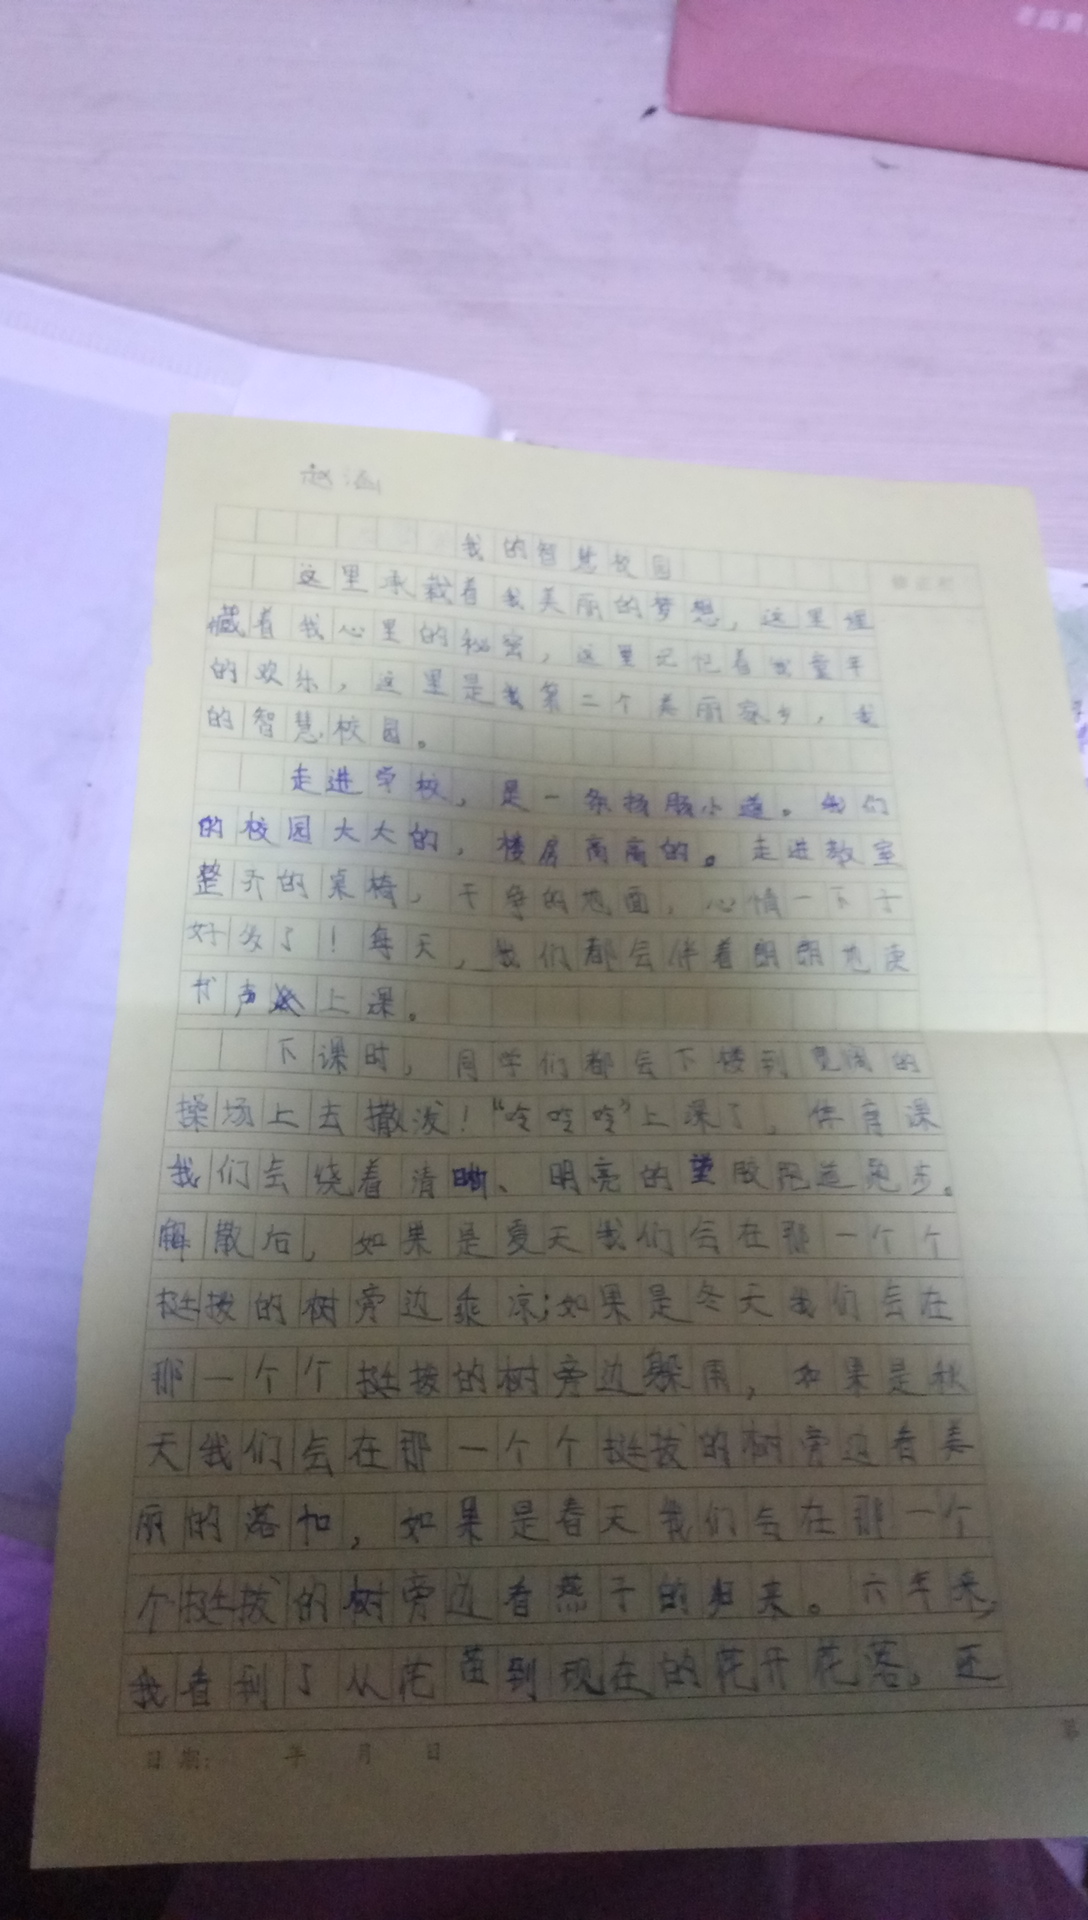 赵涵
我的智慧校园
这里承载着我美丽的梦想，这里埋
藏着我心里的秘密，这里记忆着我童年
的欢乐，这里是我第二个美丽家乡，我
的智慧校园。
走进学校，是一条扬肠小道。我们
的校园大大的，楼房高高的。走进教室
整齐的桌椅，干净的地面，心情一下子
好多了！每天，我们都会伴着朗朗地读
书声上课。
下课时，同学们都会下楼到宽阔的
操场上去撒泼！“呤呤呤”上课了，体育课
我们会绕着清晰、明亮的塑胶跑道跑步。
解散后，如果是夏天我们会在那一个个
挺拔的树旁边乘凉；如果是冬天我们会在
那一个个挺拔的树旁边躲雨，如果是秋
天我们会在那一个个挺拔的树旁边看美
丽的落和，如果是春天我们会在那一个
个挺拔的树旁边看燕子的归来。六年来，
我看到了从花苗到现在的花开花落。还
日期： 年 月 日
第